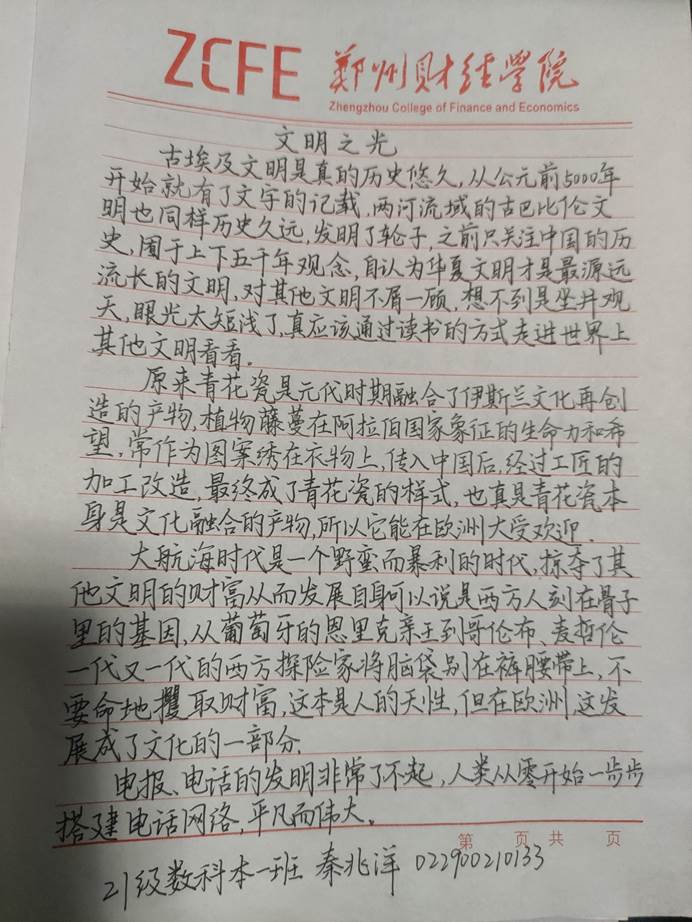 ZCFE 郑州财经学院
Zhengzhou College of Finance and Economics
文明之光
古埃及文明是真的历史悠久,从公元前5000年
开始就有了文字的记载,两河流域的古巴比伦文
明也同样历史久远,发明了轮子,之前只关注中国的历
史,囿于上下五千年观念,自认为华夏文明才是最源远
流长的文明,对其他文明不屑一顾,想不到是坐井观
天,眼光太短浅了,真应该通过读书的方式走进世界上
其他文明看看.
原来青花瓷是元代时期融合了伊斯兰文化再创
造的产物,植物藤蔓在阿拉伯国家象征的生命力和希
望,常作为图案绣在衣物上,传入中国后,经过工匠的
加工改造,最终成了青花瓷的样式,也真是青花瓷本
身是文化融合的产物,所以它能在欧洲大受欢迎.
大航海时代是一个野蛮而暴利的时代,掠夺了其
他文明的财富从而发展自身可以说是西方人刻在骨子
里的基因,从葡萄牙的恩里克亲王到哥伦布、麦哲伦
一代又一代的西方探险家将脑袋别在裤腰带上,不
要命地攫取财富,这本是人的天性,但在欧洲,这发
展成了文化的一部分.
电报、电话的发明非常了不起,人类从零开始一步步
搭建电话网络,平凡而伟大。
第 页 共 页
21级数科本一班 秦兆洋 022900210133